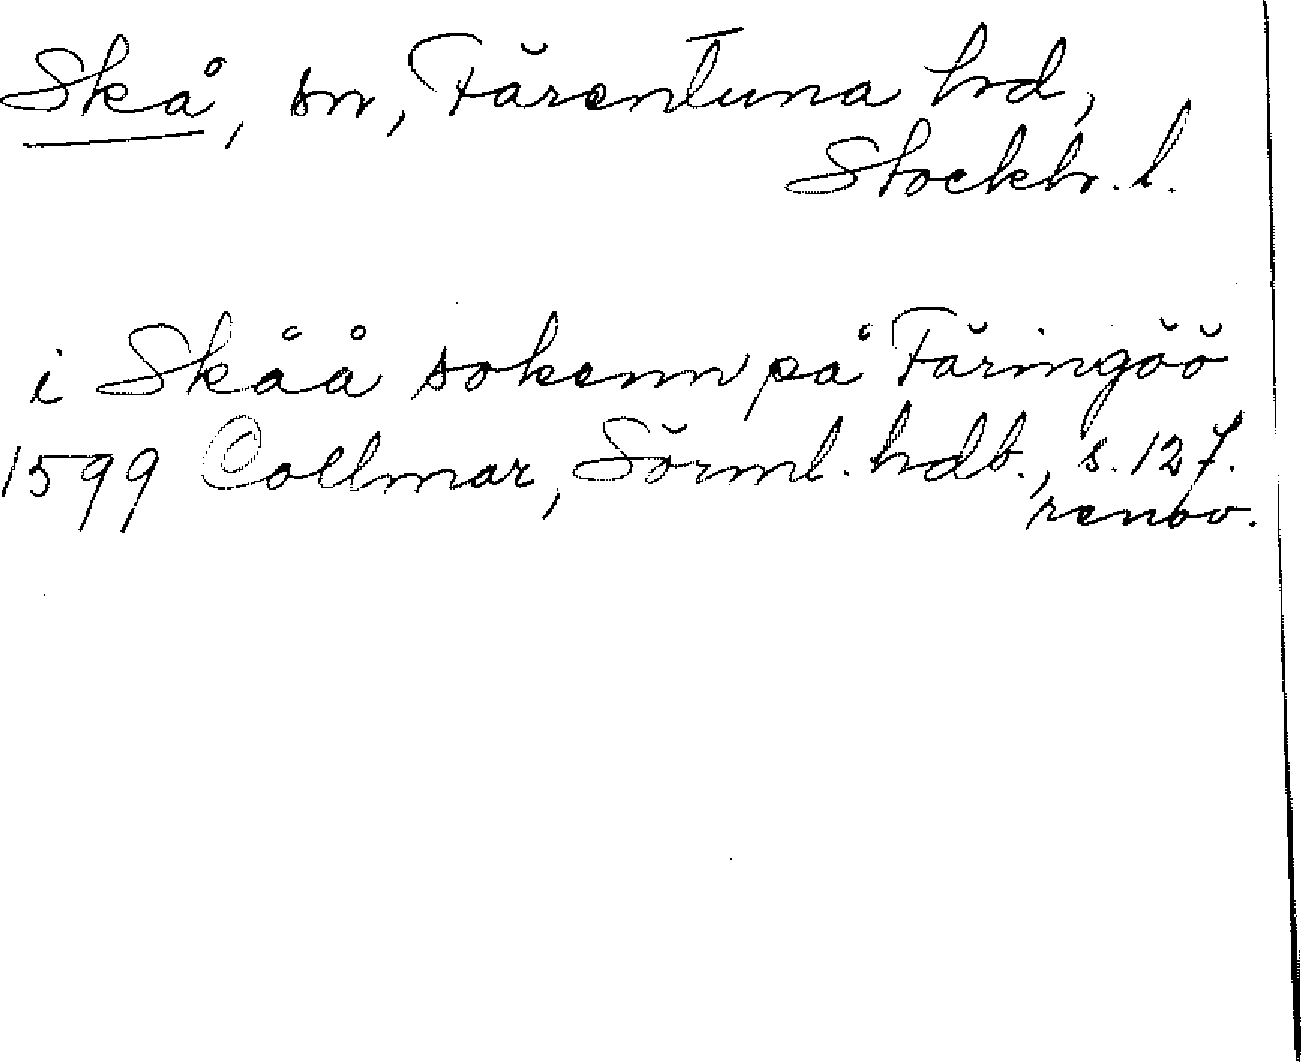 Skå, sn, Färentuna hd,
Stockh. l.
i Skåå sokenn på Färingöö
1599 Collmar, Sörml. hdb., s. 127.
renov.